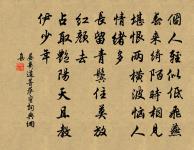 個人輕似低飛燕
春來綺陌時相見
堪恨兩橫波惱人
情緒多
長留青鬢住莫放
紅顏去
占取豔陽天且教
伊少年
晏幾道菩薩蠻詞典網
集